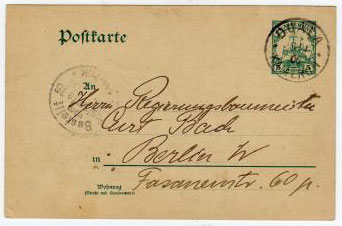 Postkarte
DUALA
An
Herrn Regierungsbaumeister
Curt Bach
in Berlin W
Wohnung
(Straße und Hausnummer)
Fasanenstr. 60 p.
Bestellt